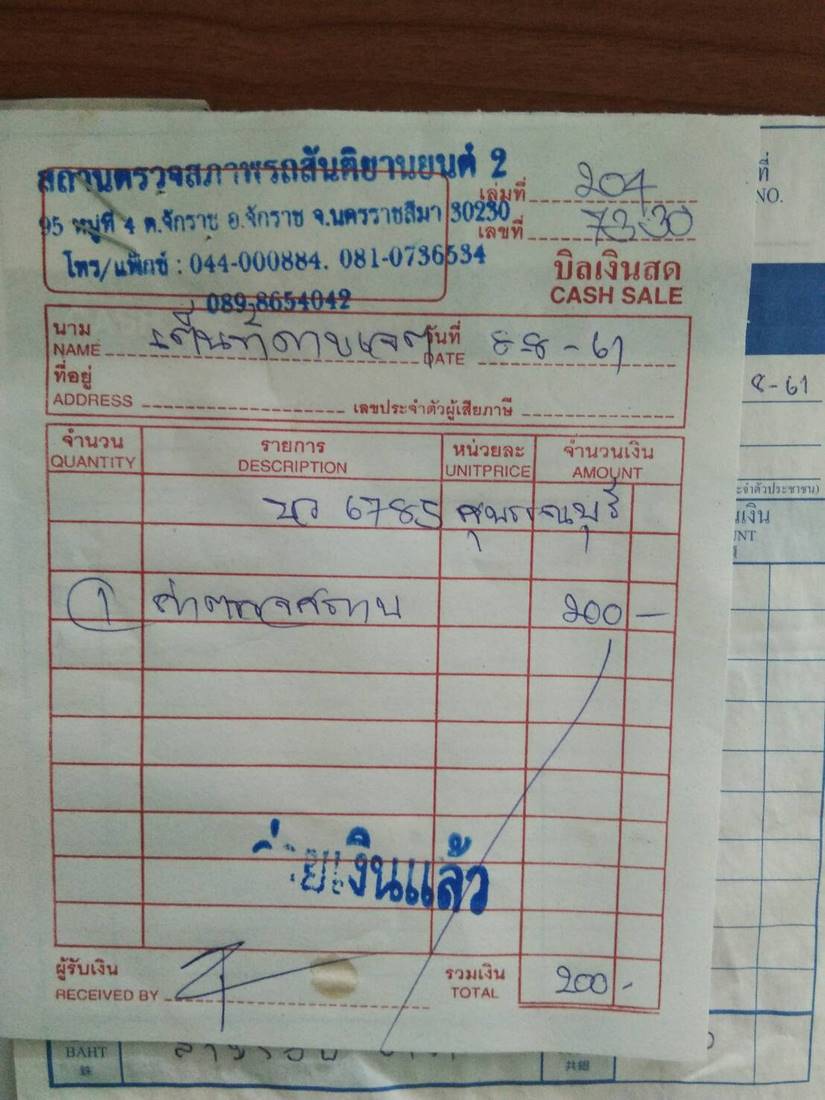 สถานตรวจสภาพรถสันติยานยนต์ 2
95 หมู่ที่ 4 ต.จักราช อ.จักราช จ.นครราชสีมา 30230
โทร/แฟ็กซ์ : 044-000884. 081-0736534
089-8654042
เล่มที่ 204
เลขที่ 7330
บิลเงินสด
CASH SALE
นาม
NAME
วันที่
DATE 8-8-61
ที่อยู่
ADDRESS
เลขประจำตัวผู้เสียภาษี
จำนวน รายการ หน่วยละ จำนวนเงิน
QUANTITY DESCRIPTION UNITPRICE AMOUNT
6785 สุพรรณบุรี
1 ค่าตรวจสภาพ 200 -
จ่ายเงินแล้ว
ผู้รับเงิน
RECEIVED BY
รวมเงิน
TOTAL 200 -
ที่
NO.
8-61
จำตัวประชาชน)
เงิน
BAHT